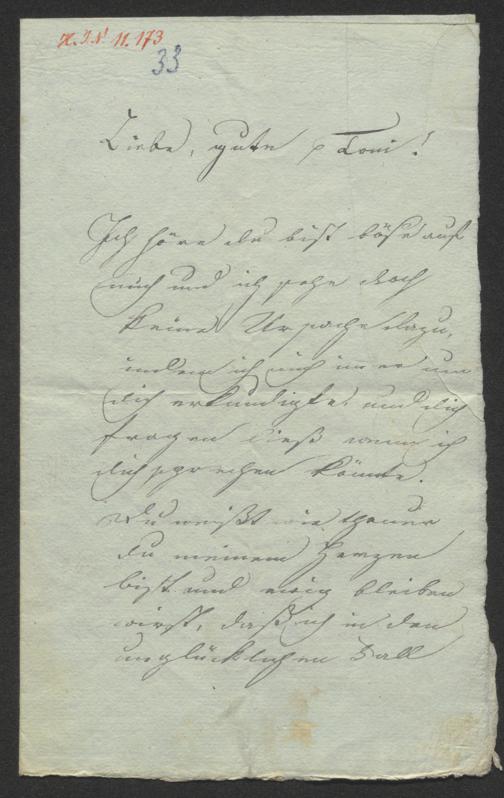 H.I.N. 11.173
33
Liebe, gute Toni!
Ich höre du bist böse auf
mich und ich sehe doch
keine Ursache dazu,
indem ich mich immer um
dich erkundigte und dich
fragen ließ wann ich
dich sprechen könnte.
Du weißt wie theuer
du meinem Herzen
bist und ewig bleiben
wirst, daß ich in den
unglücklichen Fall